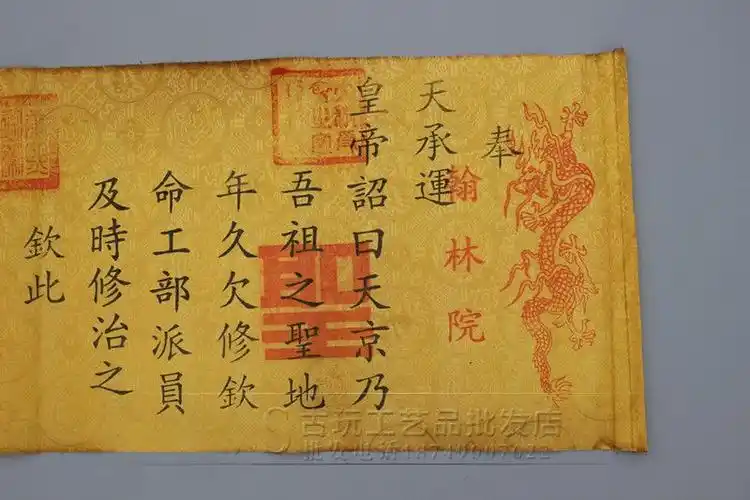 奉
天承運
皇帝詔曰天京乃
吾祖之聖地
年久欠修欽
命工部派員
及時修治之
欽此
翰林院
古玩工艺品批发店